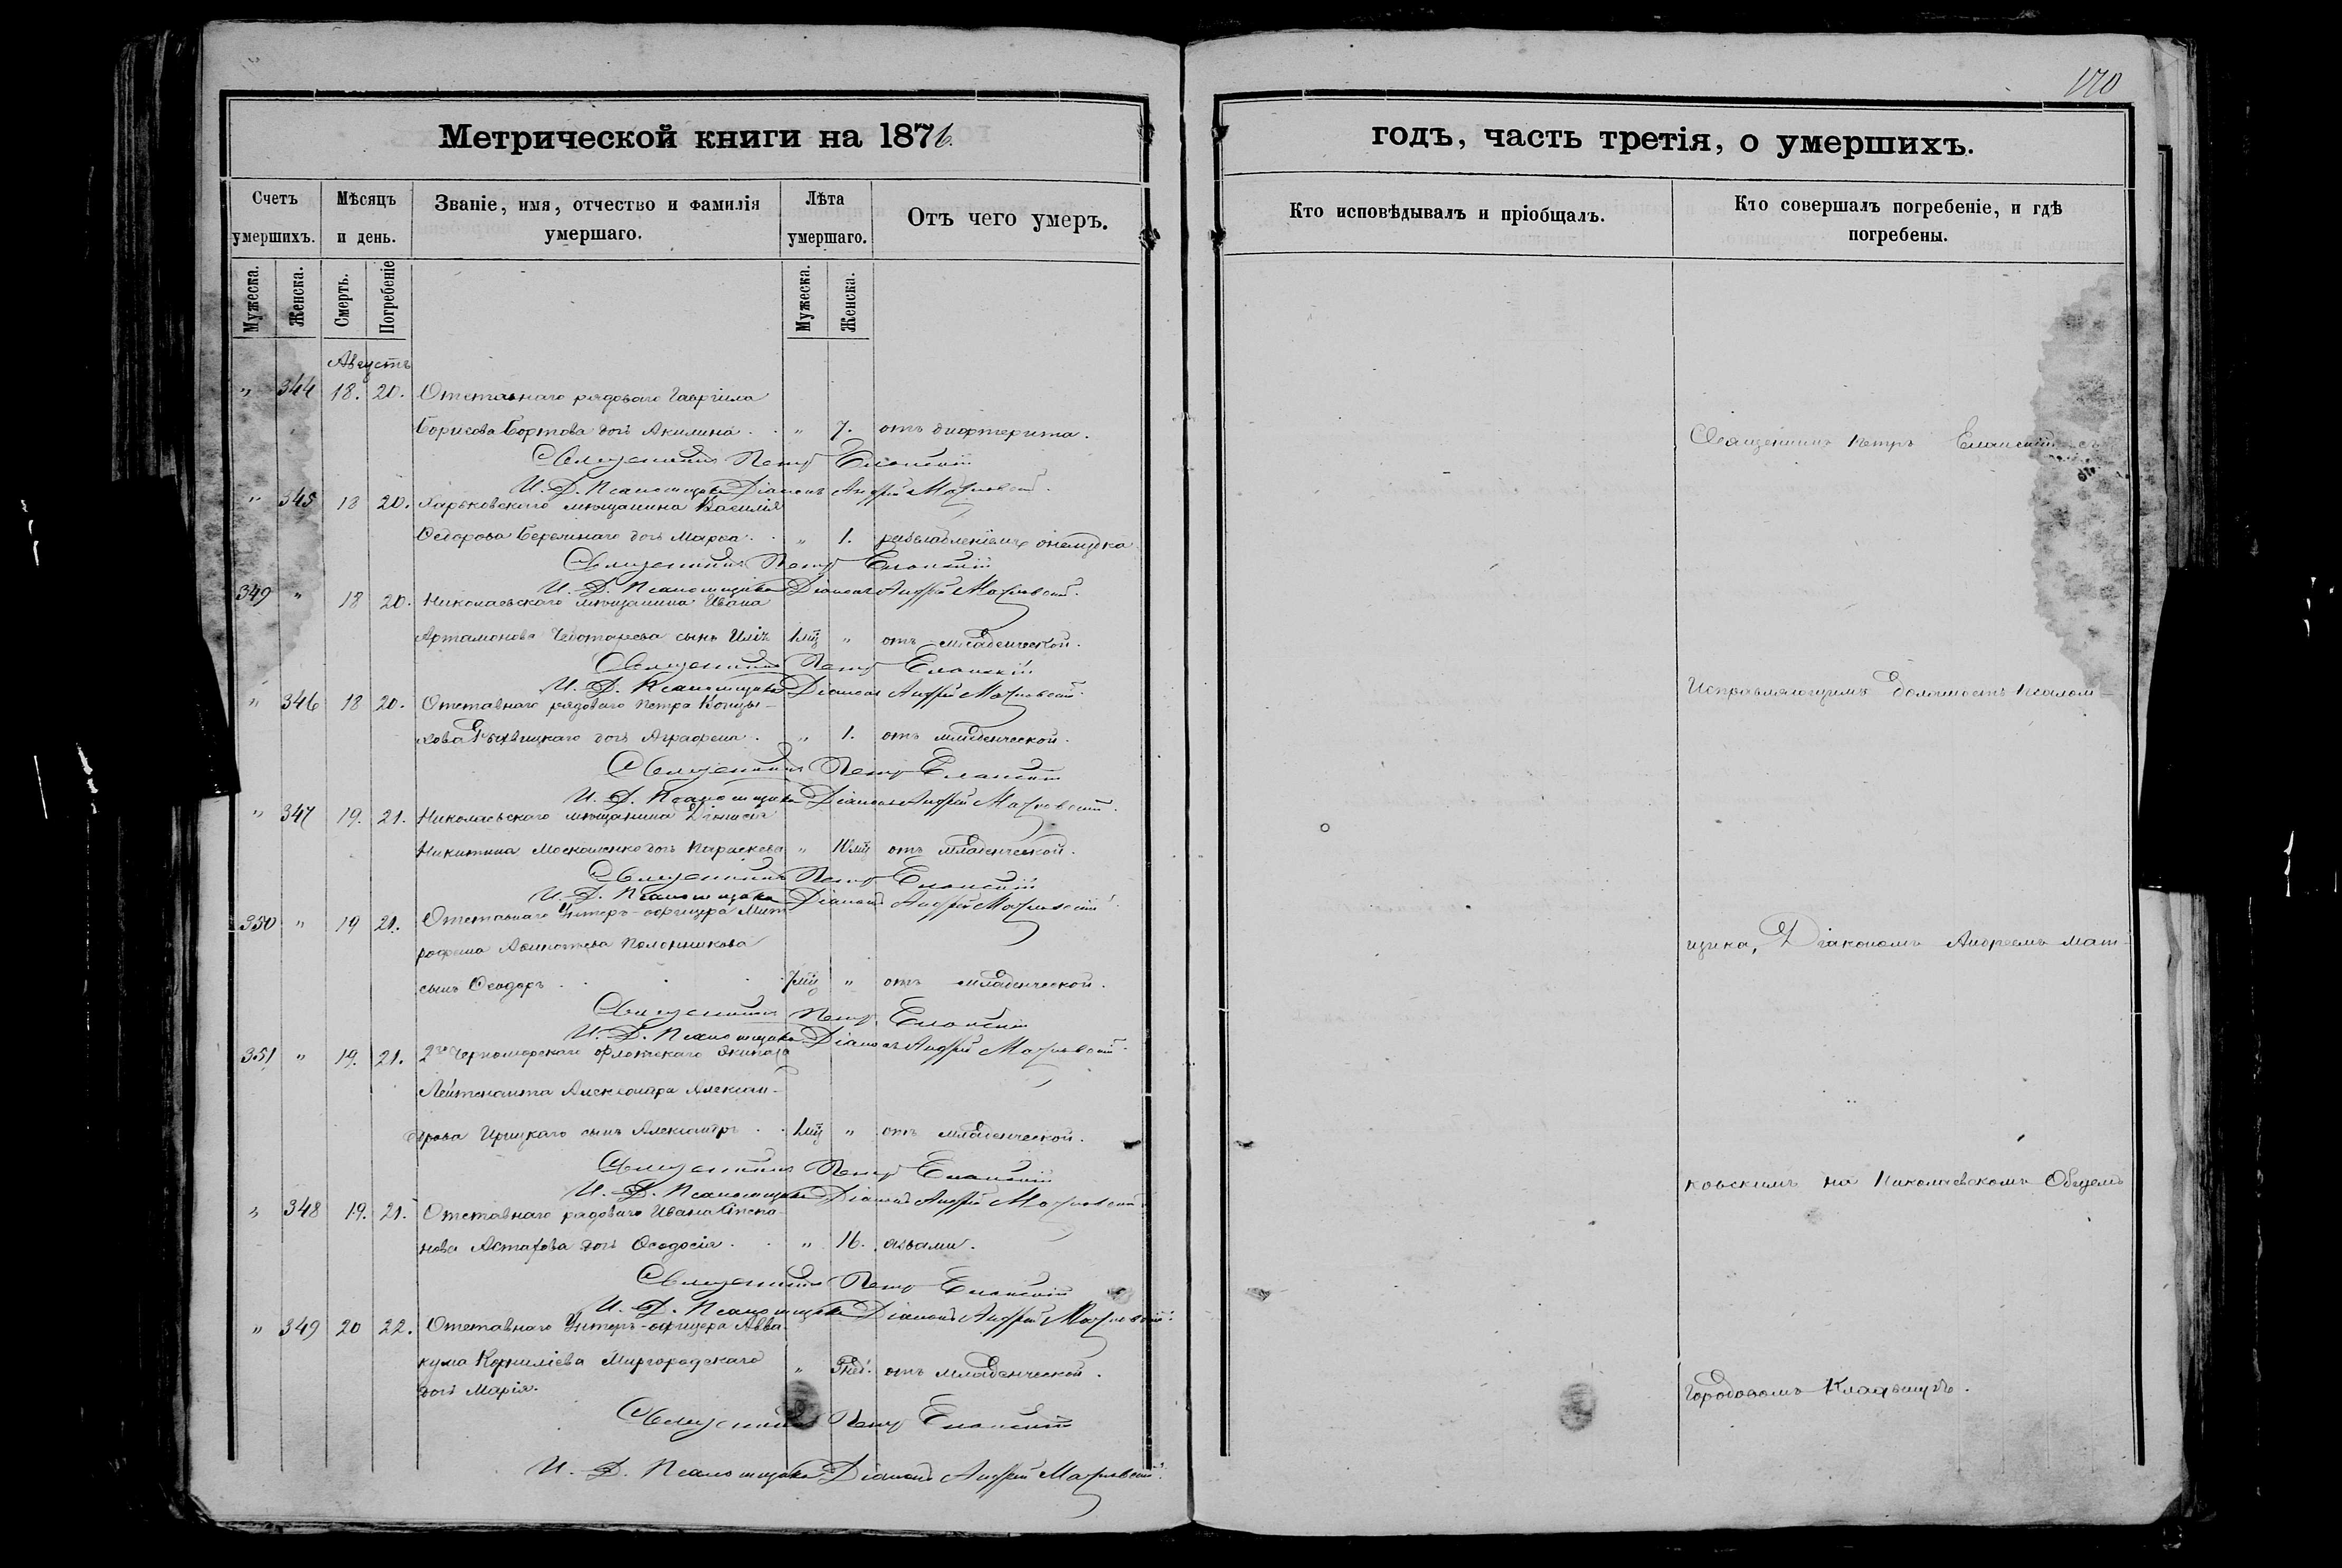 170
Метрической книги на 1876.
годъ, часть третія, о умершихъ.
Счетъ умершихъ.
Мѣсяцъ и день.
Званіе, имя, отчество и фамилія умершаго.
Лѣта умершаго.
Отъ чего умеръ.
Кто исповѣдывалъ и пріобщалъ.
Кто совершалъ погребеніе, и гдѣ погребены.
Мужеска. Женска. Смерть. Погребеніе Мужеска. Женска.
Августъ
" 344 18. 20. Отставнаго рядоваго Гавріила
Борисова Бортова дочь Акилина . . " 7. отъ дифтерита.
Священникъ Петръ Еланскій
И. Д. Псаломщика Діаконъ Андрей
" 345 18 20. Харьковскаго мѣщанина Василія
Ѳедорова дочь Марѳа . . " 1. разслабленіемъ
Священникъ Петръ Еланскій
И. Д. Псаломщика Діаконъ Андрей
349 " 18 20. Николаевскаго мѣщанина Ивана
Артамонова Чеботарева сынъ Илія 1 мц " отъ младенческой.
Священникъ Петръ Еланскій
И. Д. Псаломщика Діаконъ Андрей
" 346 18 20. Отставнаго рядоваго Петра
дочь Аграфена . " 1. отъ младенческой.
Священникъ Петръ Еланскій
И. Д. Псаломщика Діаконъ Андрей
" 347 19. 21. Николаевскаго мѣщанина Діонисія
Никитина Москаленко дочь Параскева " 10 мц отъ младенческой.
Священникъ Петръ Еланскій
И. Д. Псаломщика Діаконъ Андрей
350 " 19 21. Отставнаго Унтеръ-офицера Мит
рофана
сынъ Ѳеодоръ . . . 7 мц " отъ младенческой.
Священникъ Петръ Еланскій
И. Д. Псаломщика Діаконъ Андрей
351 " 19. 21. 2го Черноморскаго флотскаго экипажа
Лейтенанта Александра Алексан-
дрова сынъ Александръ . . 1 мц " отъ младенческой.
Священникъ Петръ Еланскій
И. Д. Псаломщика Діаконъ Андрей
" 348 19. 21. Отставнаго рядоваго Ивана Степа-
нова Астафова дочь Ѳеодосія . . " 16.
Священникъ Петръ Еланскій
И. Д. Псаломщика Діаконъ Андрей
" 349 20 22. Отставнаго Унтеръ-офицера Авва
кума Корниліева Миргородскаго " отъ младенческой.
дочь Марія.
Священникъ Петръ Еланскій
И. Д. Псаломщика Діаконъ Андрей
Священникъ Петръ Еланскій съ
Исправляющимъ должность Псалом-
щика, Діакономъ Андреемъ Мат-
ковскимъ на Николаевскомъ Общемъ
Городовомъ Кладбищѣ.